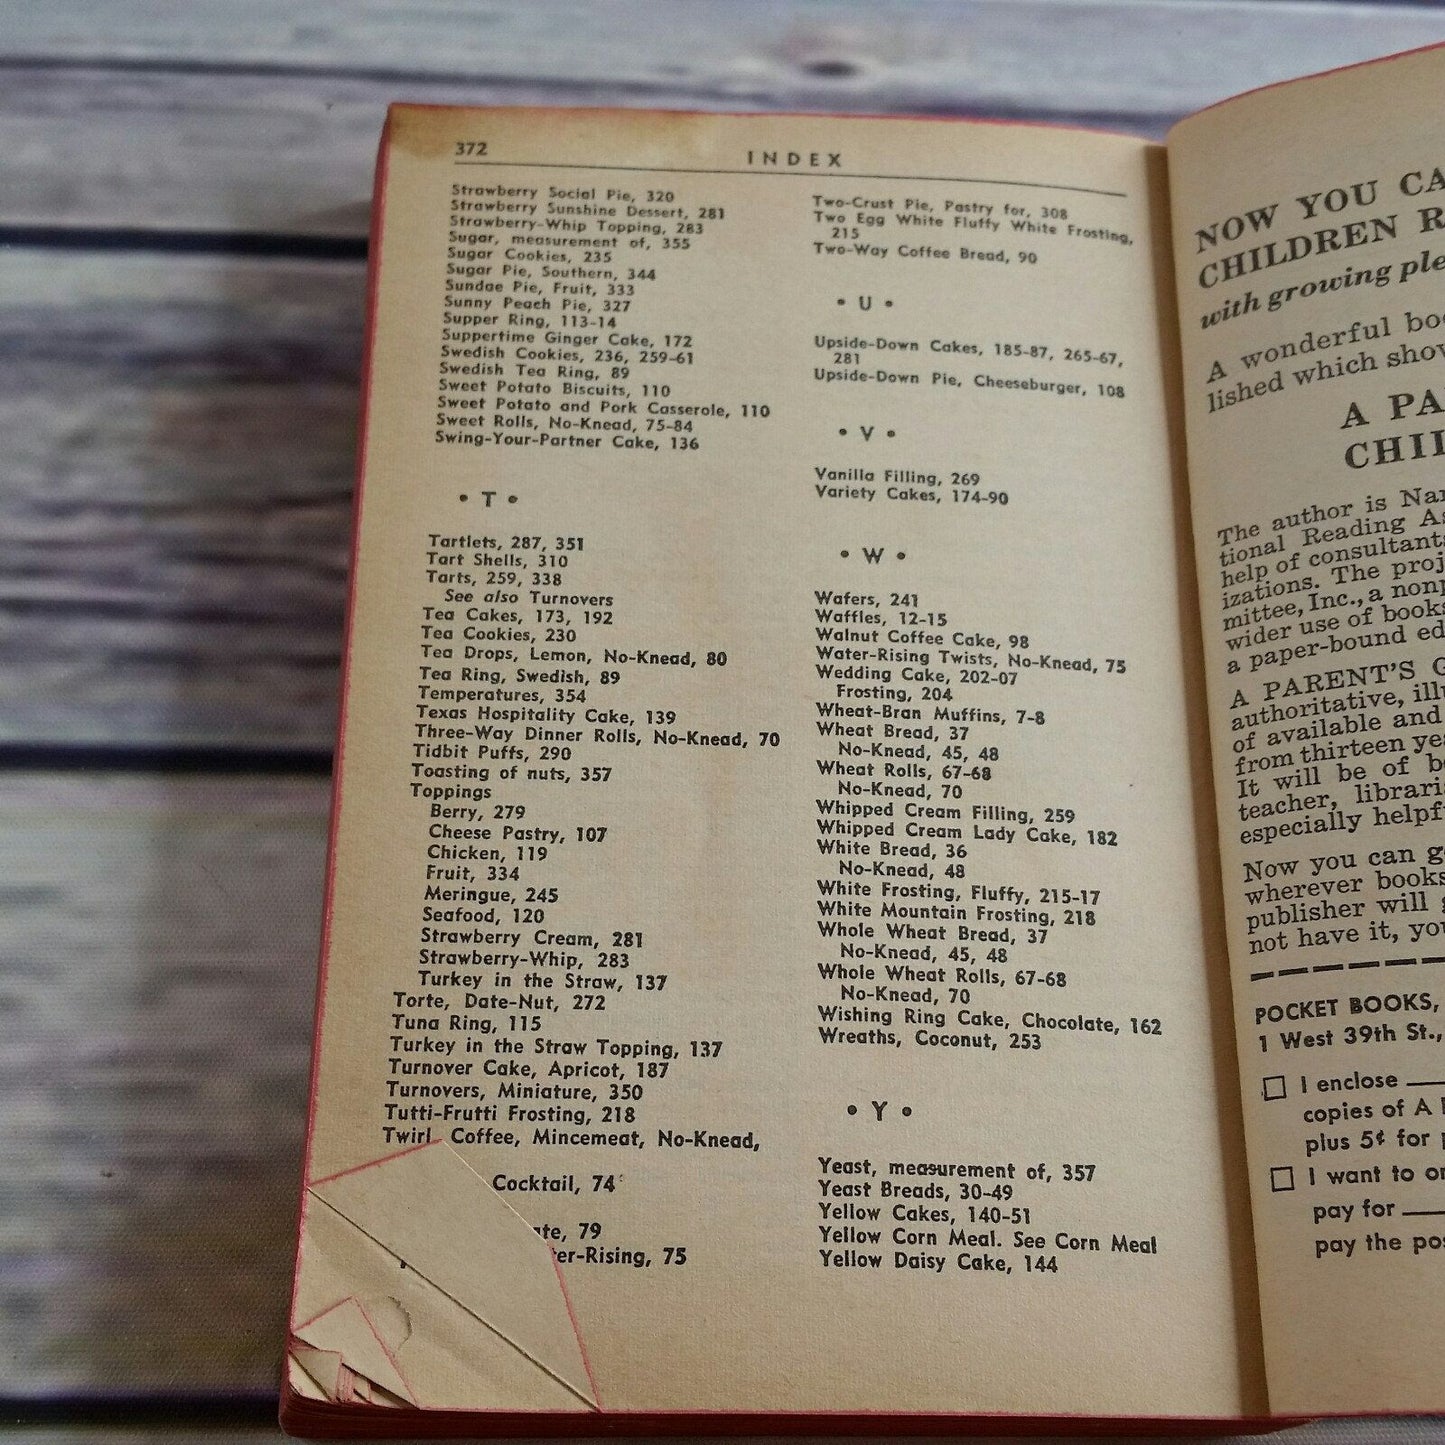 372
INDEX
Strawberry Social Pie, 320
Strawberry Sunshine Dessert, 281
Strawberry-Whip Topping, 283
Sugar, measurement of, 355
Sugar Cookies, 235
Sugar Pie, Southern, 344
Sundae Pie, Fruit, 333
Sunny Peach Pie, 327
Supper Ring, 113-14
Suppertime Ginger Cake, 172
Swedish Cookies, 236, 259-61
Swedish Tea Ring, 89
Sweet Potato Biscuits, 110
Sweet Potato and Pork Casserole, 110
Sweet Rolls, No-Knead, 75-84
Swing-Your-Partner Cake, 136
• T •
Tartlets, 287, 351
Tart Shells, 310
Tarts, 259, 338
See also Turnovers
Tea Cakes, 173, 192
Tea Cookies, 230
Tea Drops, Lemon, No-Knead, 80
Tea Ring, Swedish, 89
Temperatures, 354
Texas Hospitality Cake, 139
Three-Way Dinner Rolls, No-Knead, 70
Tidbit Puffs, 290
Toasting of nuts, 357
Toppings
Berry, 279
Cheese Pastry, 107
Chicken, 119
Fruit, 334
Meringue, 245
Seafood, 120
Strawberry Cream, 281
Strawberry-Whip, 283
Turkey in the Straw, 137
Torte, Date-Nut, 272
Tuna Ring, 115
Turkey in the Straw Topping, 137
Turnover Cake, Apricot, 187
Turnovers, Miniature, 350
Tutti-Frutti Frosting, 218
Twirl, Coffee, Mincemeat, No-Knead,
Cocktail, 74
ate, 79
ter-Rising, 75
Two-Crust Pie, Pastry for, 308
Two Egg White Fluffy White Frosting,
215
Two-Way Coffee Bread, 90
• U •
Upside-Down Cakes, 185-87, 265-67,
281
Upside-Down Pie, Cheeseburger, 108
• V •
Vanilla Filling, 269
Variety Cakes, 174-90
• W •
Wafers, 241
Waffles, 12-15
Walnut Coffee Cake, 98
Water-Rising Twists, No-Knead, 75
Wedding Cake, 202-07
Frosting, 204
Wheat-Bran Muffins, 7-8
Wheat Bread, 37
No-Knead, 45, 48
Wheat Rolls, 67-68
No-Knead, 70
Whipped Cream Filling, 259
Whipped Cream Lady Cake, 182
White Bread, 36
No-Knead, 48
White Frosting, Fluffy, 215-17
White Mountain Frosting, 218
Whole Wheat Bread, 37
No-Knead, 45, 48
Whole Wheat Rolls, 67-68
No-Knead, 70
Wishing Ring Cake, Chocolate, 162
Wreaths, Coconut, 253
• Y •
Yeast, measurement of, 357
Yeast Breads, 30-49
Yellow Cakes, 140-51
Yellow Corn Meal. See Corn Meal
Yellow Daisy Cake, 144
NOW YOU CA
CHILDREN R
with growing ple
A wonderful boo
lished which show
A PA
CHIL
The author is Nan
tional Reading As
help of consultants
izations. The proj
mittee, Inc., a nonp
wider use of books
a paper-bound ed
A PARENT'S G
authoritative, illu
of available and
from thirteen yea
It will be of b
teacher, libraria
especially helpf
Now you can g
wherever books
publisher will
not have it, you
POCKET BOOKS,
1 West 39th St.,
I enclose
copies of A
plus 5¢ for p
I want to or
pay for
pay the pos